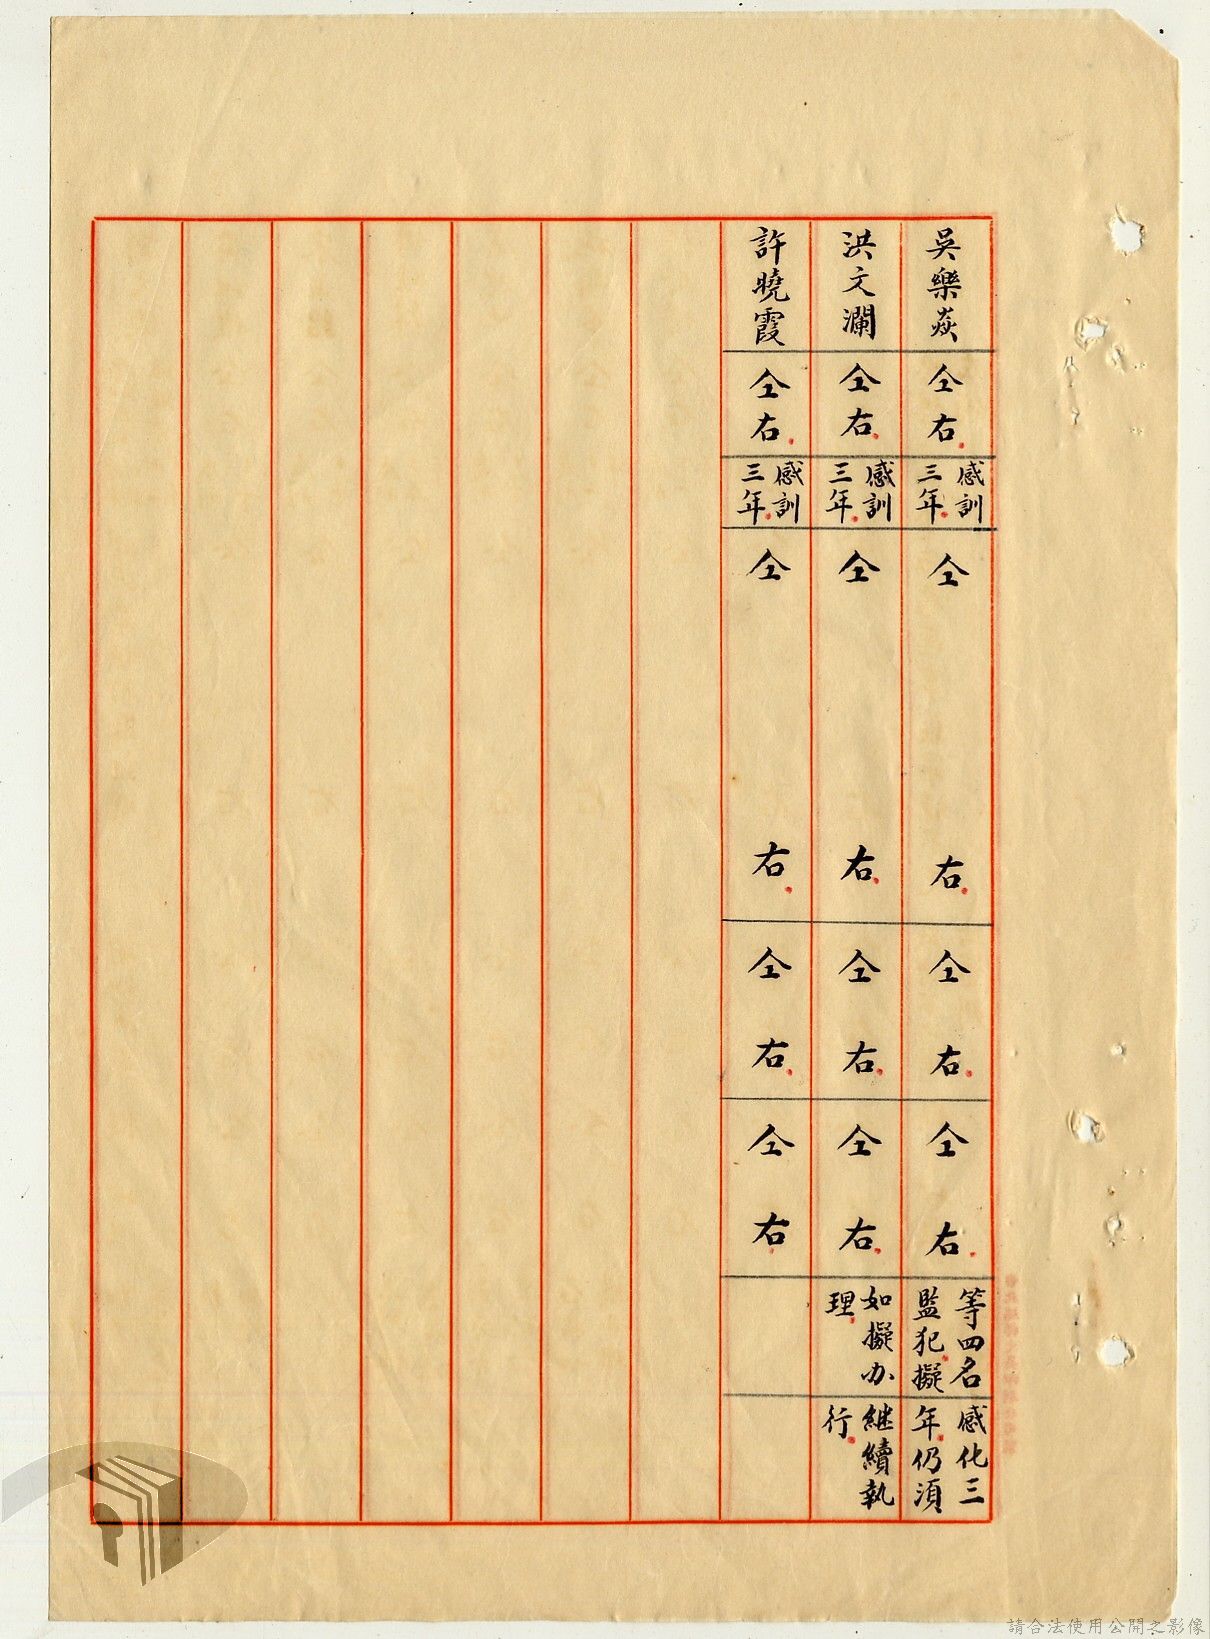 吳樂焱
仝右
感訓
三年
仝右
仝右
仝右
等四名
監犯擬
感化三
年仍須
洪文瀾
仝右
感訓
三年
仝右
仝右
仝右
如擬办
理
繼續執
行
許曉霞
仝右
感訓
三年
仝右
仝右
仝右
請合法使用公開之影像